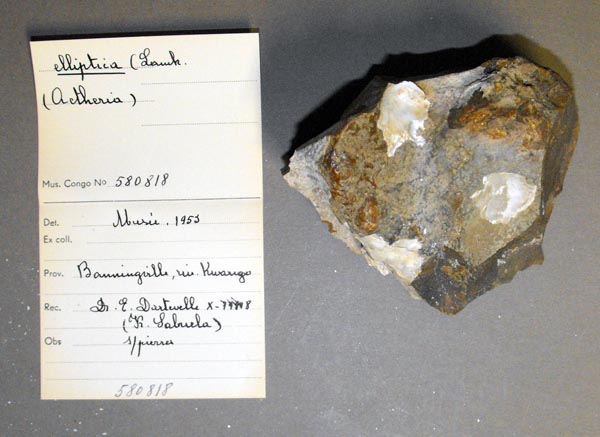 elliptica (Lamk.
(Aetheria)
Mus. Congo No 580818
Det. Musée. 1953
Ex coll.
Prov. Banningville, riv. Kwango
Rec. Dr. E. Dartevelle X-
(R. Sabuela)
Obs s/pierres
580818